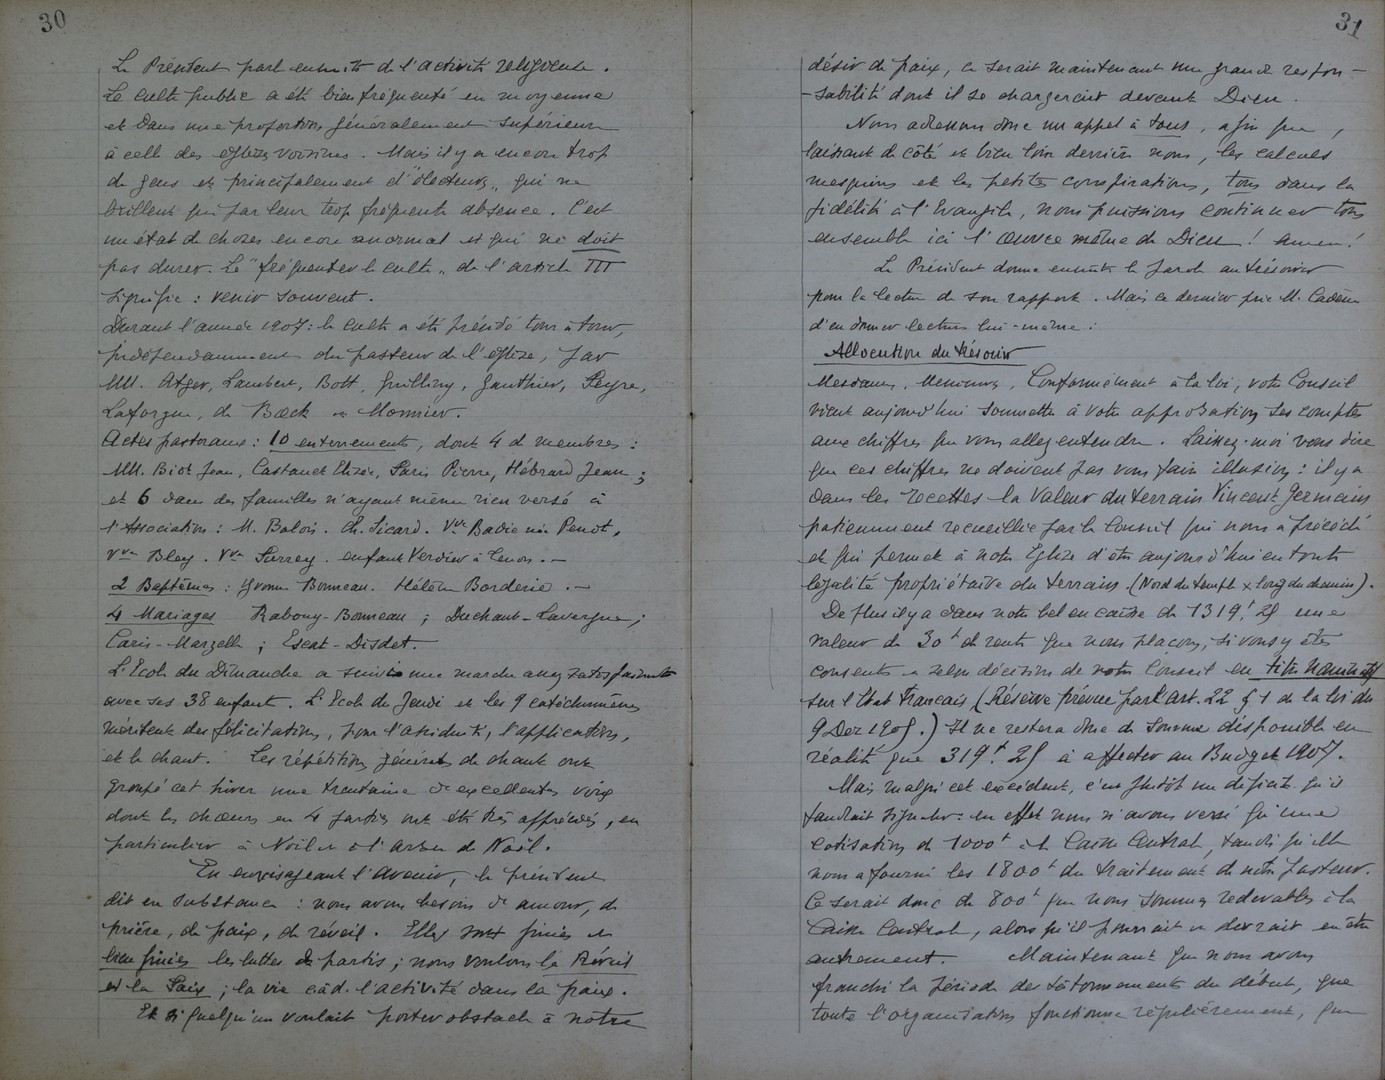 30
Le Président parle ensuite de l'activité religieuse.
Le culte public a été bien fréquenté en moyenne
et dans une proportion généralement supérieure
à celle des églises voisines. Mais il y a encore trop
de gens et principalement d'"électeurs" qui ne
brillent que par leur trop fréquente absence. C'est
un état de choses encore anormal et qui ne doit
pas durer. Le "fréquenter le culte" de l'article III
signifie : venir souvent.
Durant l'année 1907 : le culte a été présidé tour à tour,
indépendamment du pasteur de l'église, par
MM. Atger, Lambert, Bott, Guilliny, Gauthier, Peyre,
Laforgue, de Bœck et Monnier.
Actes pastoraux : 10 enterrements, dont 4 de membres :
MM. Biot Jean, Castanet Elizée, Paris Pierre, Hébrard Jean ;
et 6 dans des familles n'ayant même rien versé à
l'Association : M. Balois. Ch. Sicard. Vve Badie née Penot,
Vve Bley. Vve Surrey. enfant Verdier à .—
2 Baptêmes : Yvonne Bonneau. Hélène Borderie .—
4 Mariages Rabouy-Bonneau ; Duchant-Lavergne ;
Caris-Marzelle ; Escat-Disdet.
L'Ecole du Dimanche a suivi une marche assez satisfaisante
avec ses 38 enfants. L'Ecole du Jeudi et les 9 catéchumènes
méritent des félicitations, pour l'assiduité, l'application,
et le chant. Les répétitions générales de chant ont
groupé cet hiver une trentaine d'excellentes voix
dont les chœurs en 4 parties ont été très appréciés, en
particulier à Noël et à l'Arbre de Noël.
En envisageant l'avenir, le président
dit en substance : nous avons besoin d'amour, de
prière, de paix, de réveil. Elles sont finies et
bien finies les luttes de partis ; nous voulons le Réveil
et la Paix ; la vie càd. l'activité dans la paix.
Et si quelqu'un voulait porter obstacle à notre
31
désir de paix, ce serait maintenant une grande respon-
-sabilité dont il se chargerait devant Dieu.
Nous adressons donc un appel à tous, afin que,
laissant de côté et bien loin derrière nous, les calculs
mesquins et les petites conspirations, tous dans la
fidélité à l'Evangile, nous puissions continuer tous
ensemble ici l'œuvre même de Dieu ! amen !
Le Président donne ensuite la parole au trésorier
pour la lecture de son rapport. Mais ce dernier prie M. Cadène
d'en donner lecture lui-même :
Allocution du trésorier
Mesdames, Messieurs, Conformément à la loi, votre Conseil
vient aujourd'hui soumettre à votre approbation ses comptes
aux chiffres que vous allez entendre. Laissez-moi vous dire
que ces chiffres ne doivent pas vous faire illusion : il y a
dans les recettes la valeur du terrain Vincent Germain
patiemment recueillie par le Conseil qui nous a précédé
et qui permet à notre Eglise d'être aujourd'hui en toute
légalité propriétaire du terrain. (Nord du temple x long du chemin).
De plus il y a dans notre bel en caisse de 1319f,25 une
valeur de 30f de rente que nous plaçons, si vous y êtes
consentis et selon décision de votre Conseil en titre nominatif
sur l'Etat Français (Réserve prévue par l'art. 22 § 1 de la loi du
9 Dec 1905.) Il ne restera donc de somme disponible en
réalité que 319f.25 à affecter au Budget 1907.
Mais malgré cet excédent, c'est plutôt un déficit qu'il
faudrait signaler : en effet nous n'avons versé qu'une
cotisation de 1000f à la Caisse Centrale, tandis qu'elle
nous a fourni les 1800f du traitement de notre pasteur.
Ce serait donc de 800f que nous sommes redevables à la
Caisse Centrale, alors qu'il pourrait et devrait en être
autrement. Maintenant que nous avons
franchi la période des tâtonnements du début, que
toute l'organisation fonctionne régulièrement, que